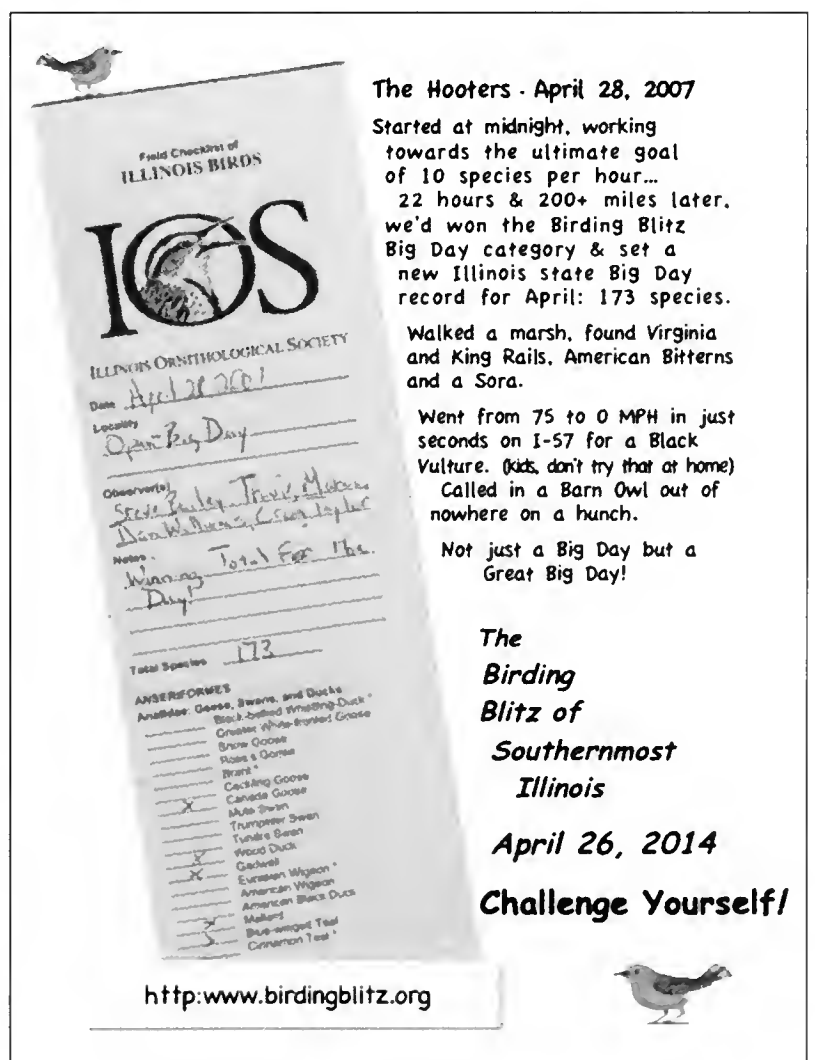 Field Checklist of
ILLINOIS BIRDS
IOS
ILLINOIS ORNITHOLOGICAL SOCIETY
Date April 28 2007
Locality
Open Big Day
Observer(s)
Steve Bailey, Travis
Dan Williams,
Notes
Winning Total For the
Day!
Total Species 173
ANSERIFORMES
Anatidae: Geese, Swans, and Ducks
Black-bellied Whistling-Duck *
Greater White-fronted Goose
Snow Goose
Ross's Goose
Brant *
Cackling Goose
X Canada Goose
Mute Swan
Trumpeter Swan
Tundra Swan
X Wood Duck
X Gadwall
Eurasian Wigeon *
American Wigeon
American Black Duck
X Mallard
Blue-winged Teal
Cinnamon Teal *
http:www.birdingblitz.org
The Hooters - April 28, 2007
Started at midnight, working
towards the ultimate goal
of 10 species per hour...
22 hours & 200+ miles later,
we'd won the Birding Blitz
Big Day category & set a
new Illinois state Big Day
record for April: 173 species.
Walked a marsh, found Virginia
and King Rails, American Bitterns
and a Sora.
Went from 75 to 0 MPH in just
seconds on I-57 for a Black
Vulture. (kids, don't try that at home)
Called in a Barn Owl out of
nowhere on a hunch.
Not just a Big Day but a
Great Big Day!
The
Birding
Blitz of
Southernmost
Illinois
April 26, 2014
Challenge Yourself!